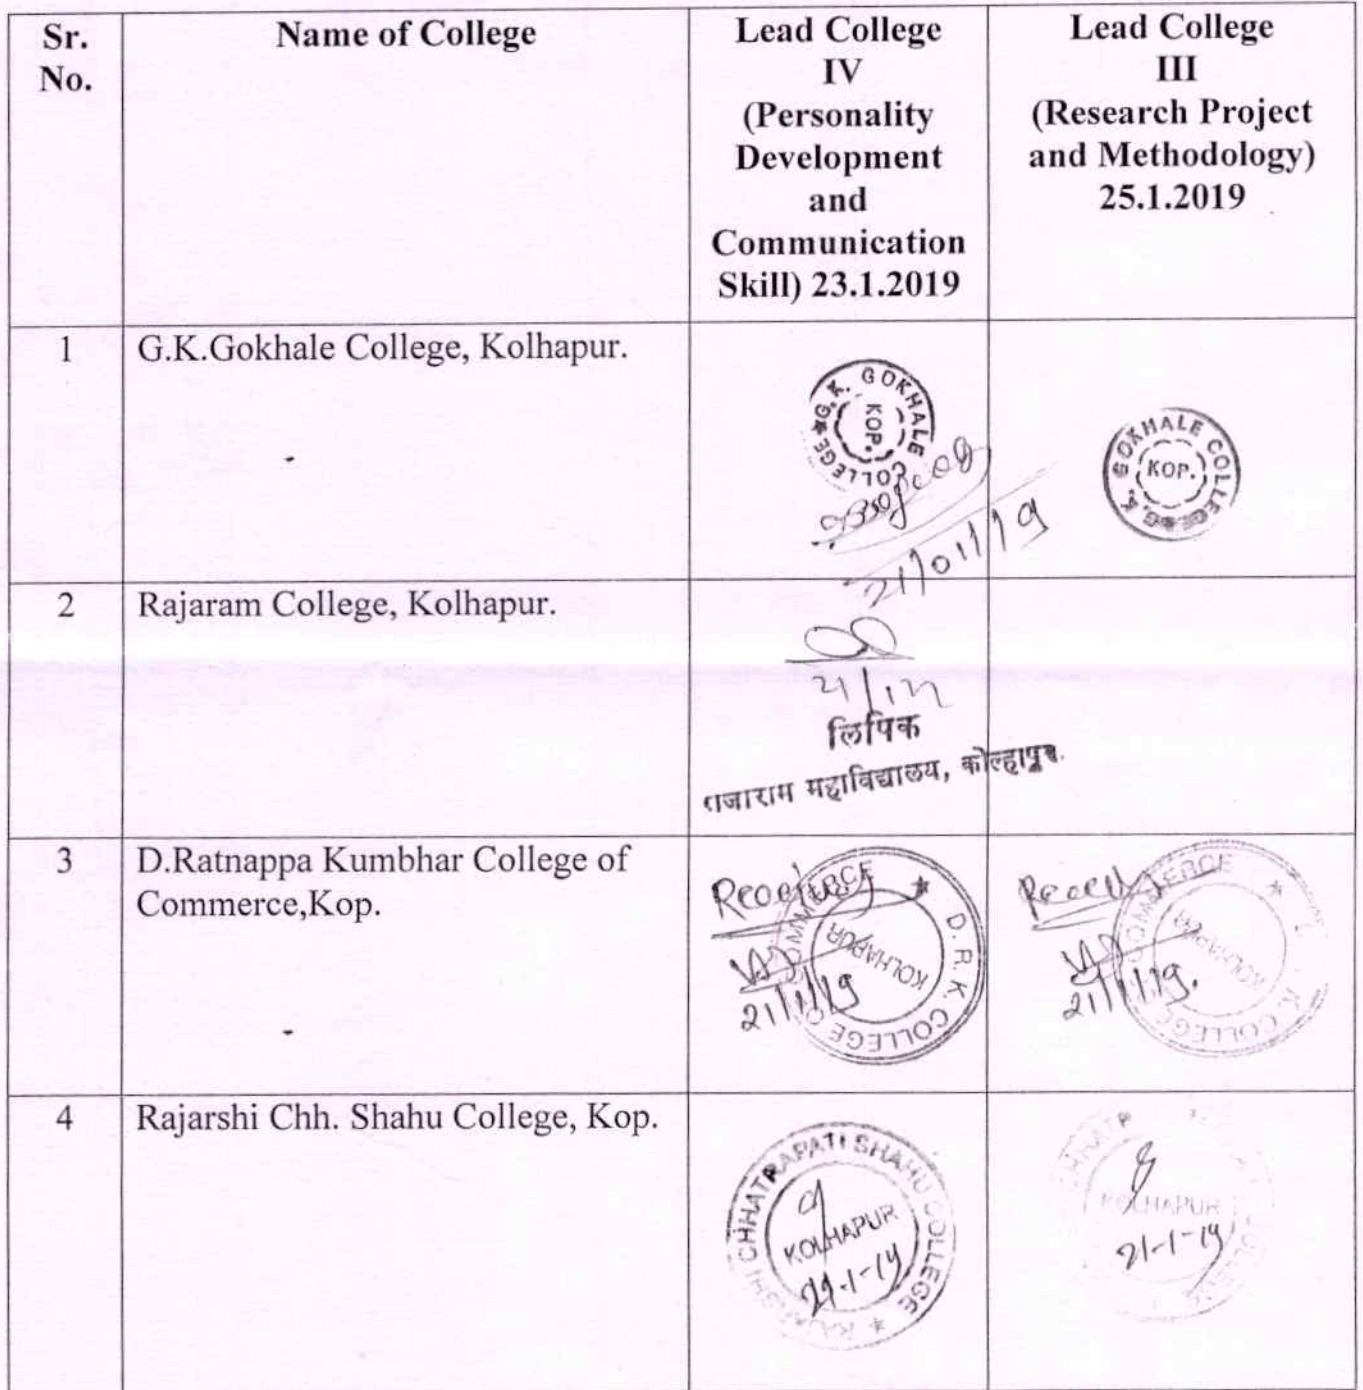 Sr.
No.
Name of College
Lead College
IV
(Personality
Development
and
Communication
Skill) 23.1.2019
Lead College
III
(Research Project
and Methodology)
25.1.2019
1
G.K.Gokhale College, Kolhapur.
G.K. GOKHALE COLLEGE
KOP.
21/01/19
G.K. GOKHALE COLLEGE
KOP.
2
Rajaram College, Kolhapur.
लिपिक
राजाराम महाविद्यालय, कोल्हापूर.
3
D.Ratnappa Kumbhar College of
Commerce,Kop.
D.R.K. COLLEGE OF COMMERCE
KOLHAPUR
21/1/19
K. COLLEGE OF COMMERCE
KOLHAPUR
21/1/19.
4
Rajarshi Chh. Shahu College, Kop.
RAJARSHI CHHATRAPATI SHAHU COLLEGE
KOLHAPUR
21-1-19
KOLHAPUR
21-1-19